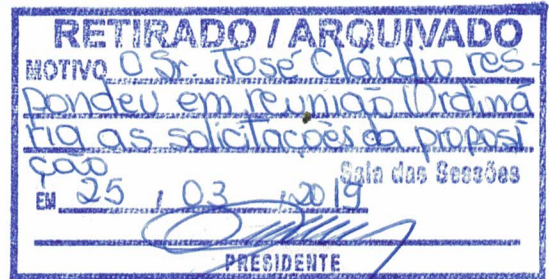 RETIRADO / ARQUIVADO
MOTIVO O Sr. José Claudio res-
pondeu em reunião Ordiná
ria as solicitações da proposi
ção
Sala das Sessões
EM 25 / 03 / 2019
PRESIDENTE